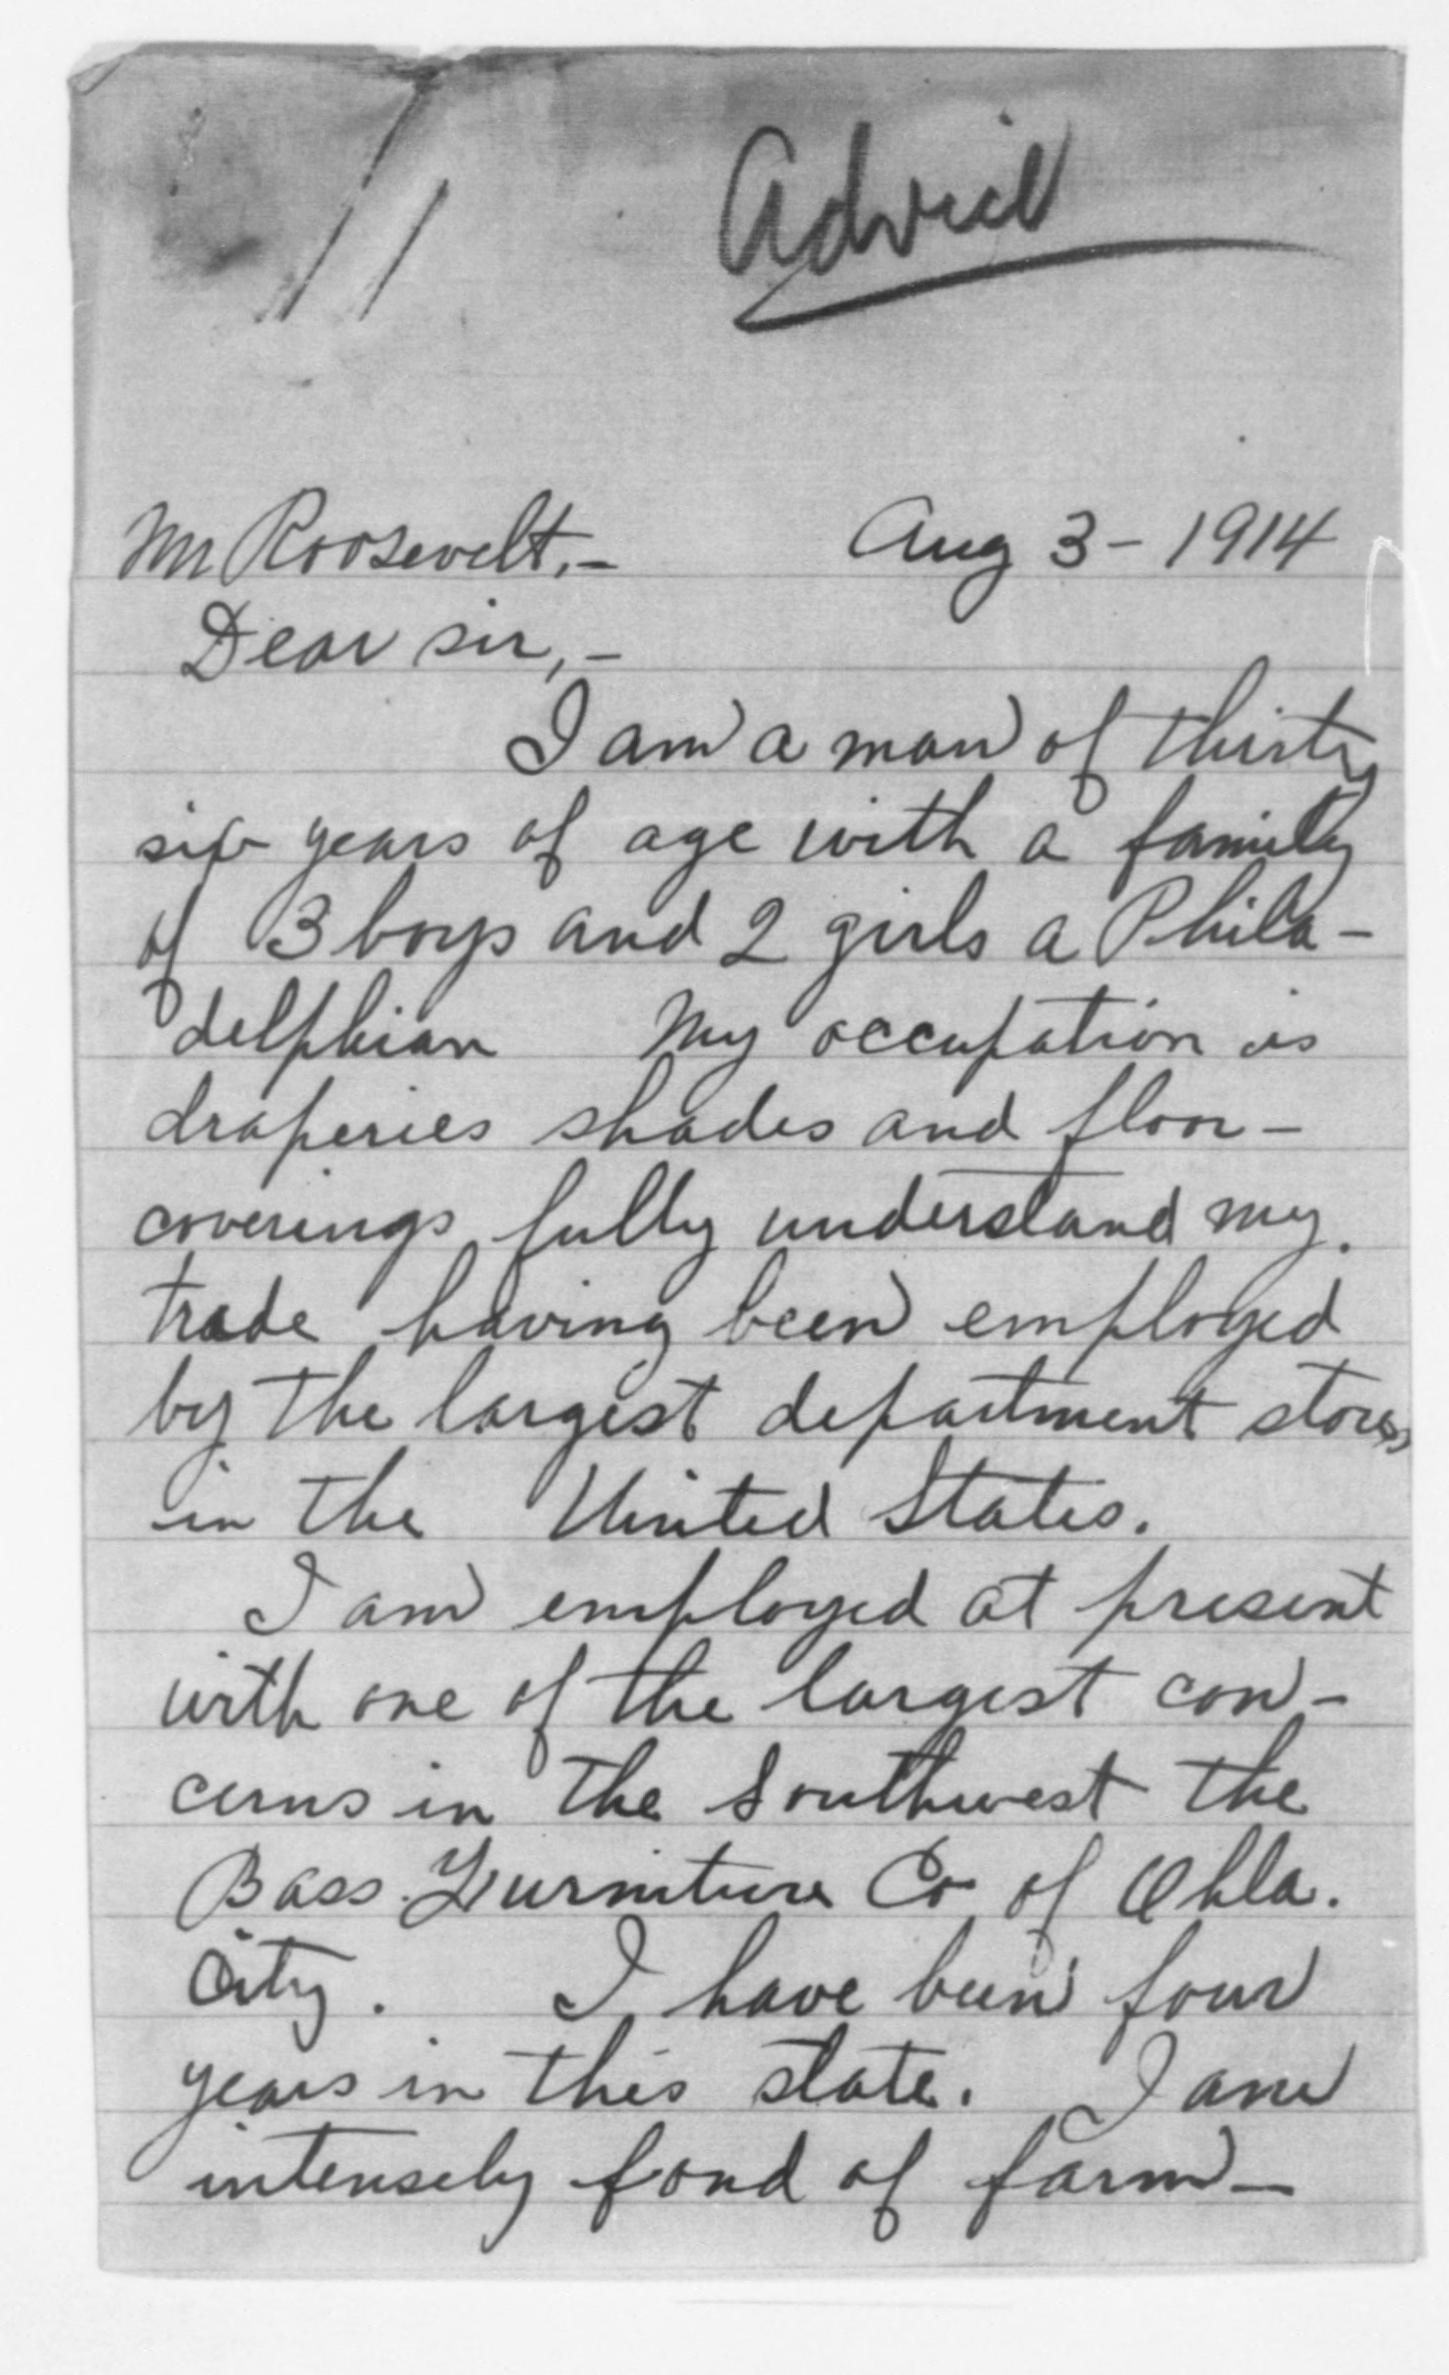 Advice
Mr Roosevelt,- Aug 3-1914
Dear sir,-
I am a man of thirty
six years of age with a family
of 3 boys and 2 girls a Phila-
delphian My occupation is
draperies shades and floor-
coverings fully understand my
trade having been employed
by the largest department stores
in the United States.
I am employed at present
with one of the largest con-
cerns in the Southwest the
Bass Furniture Co of Okla.
City. I have been four
years in this state. I am
intensely fond of farm-